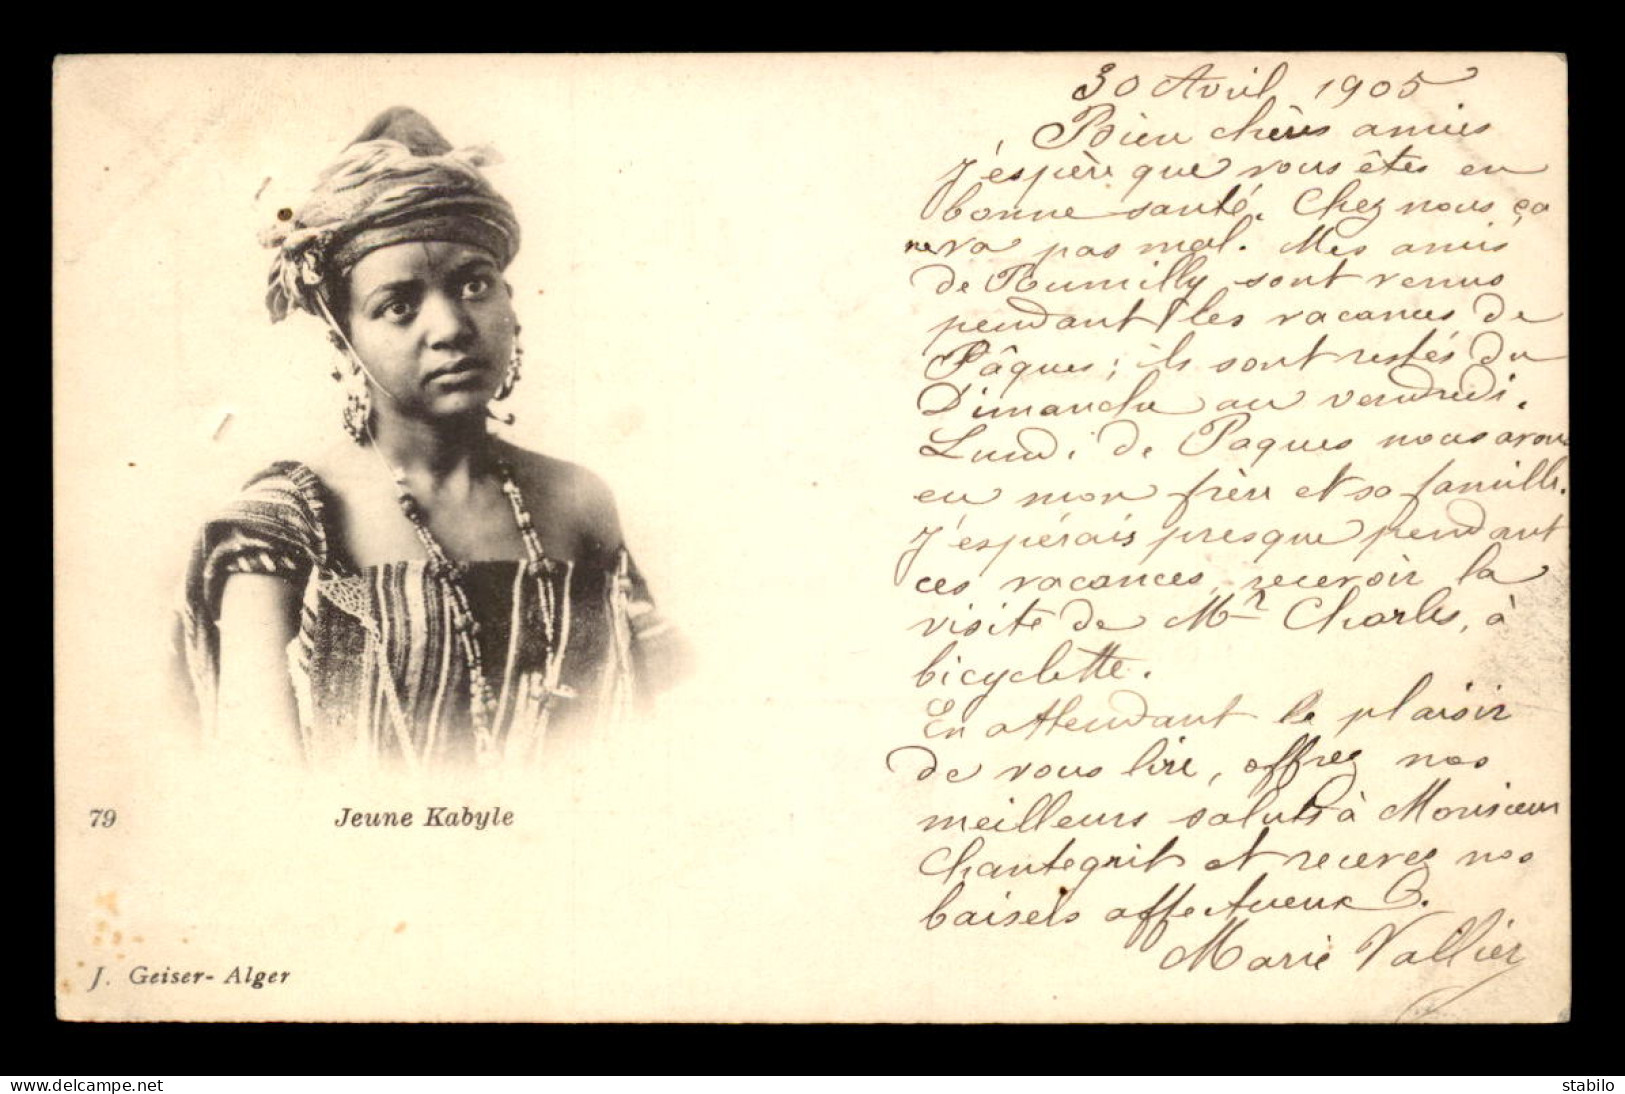 30 Avril 1905
Bien chères amies
J'espère que vous êtes en
bonne santé. Chez nous ça
ne va pas mal. Mes amis
de Rumilly sont venus
pendant les vacances de
Pâques; ils sont restés du
Dimanche au vendredi.
Lundi de Paques nous avons
eu mon frère et sa famille.
J'espérais presque pendant
ces vacances, recevoir la
visite de Mr Charles, à
bicyclette.
En attendant le plaisir
de vous lire, offrez nos
meilleurs saluts à Monsieur
Chantegrit et recevez nos
baisers affectueux.
Marie Vallier
79
Jeune Kabyle
J. Geiser- Alger
www.delcampe.net
stabilo